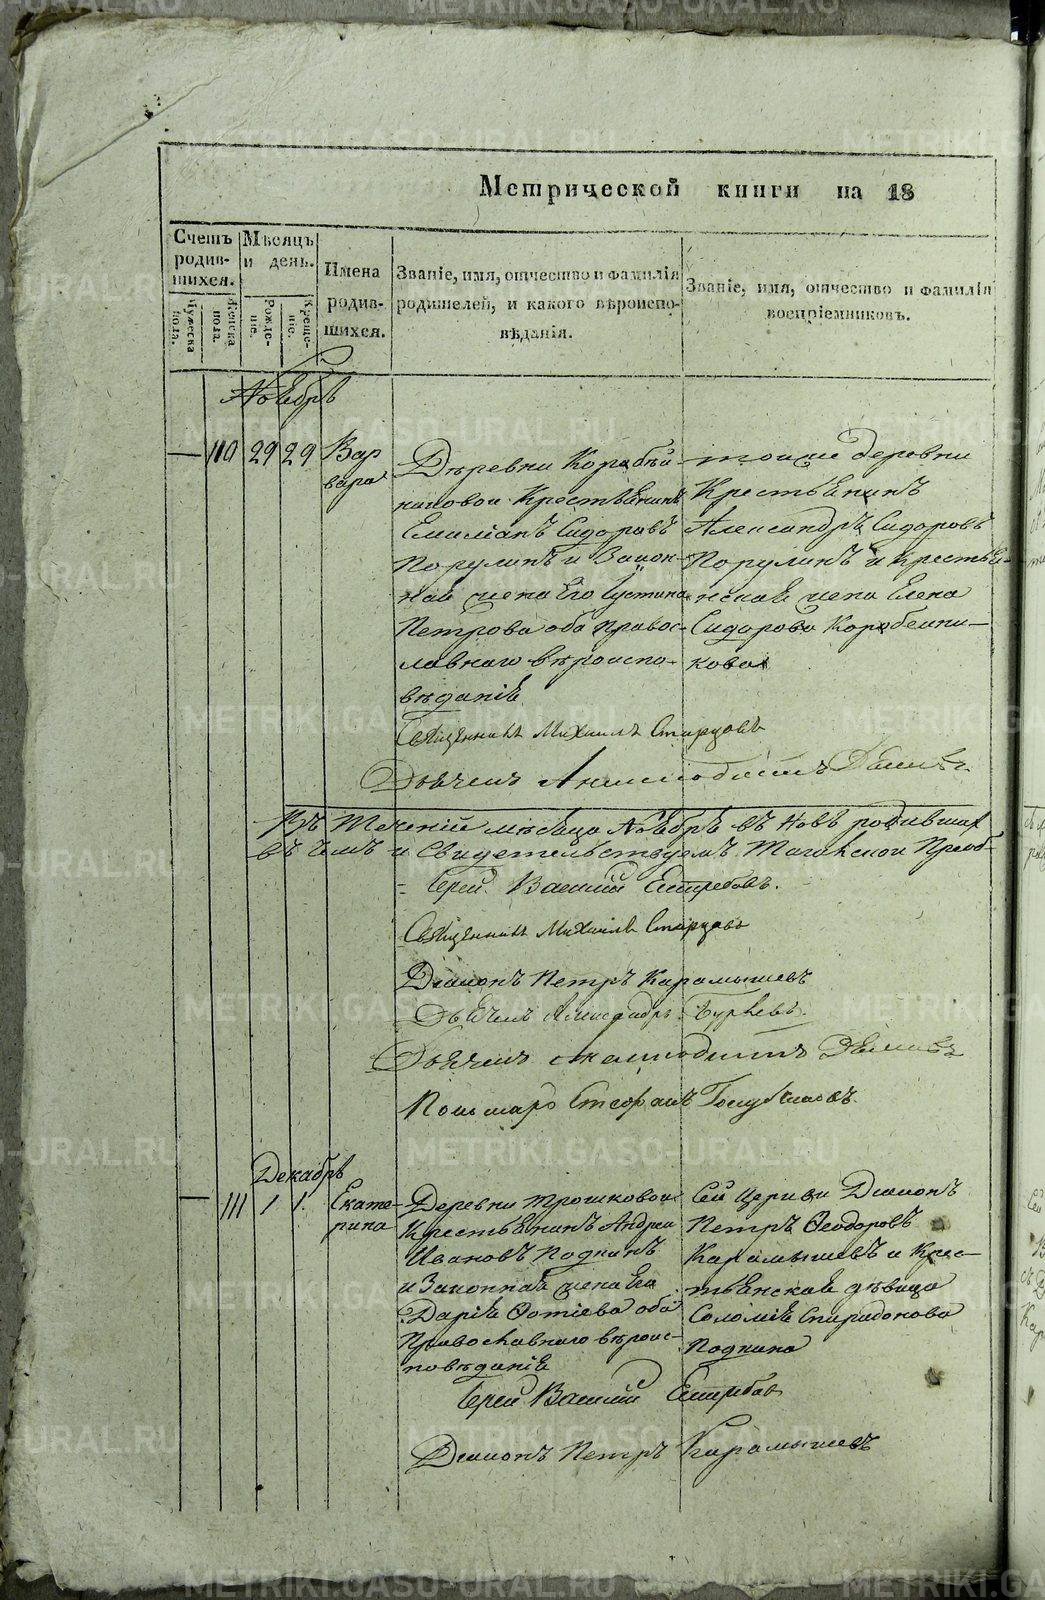 Метрической книги на 18
Счетъ родив-шихся.
Мужеска пола.
Женска пола.
Мѣсяцъ и день.
Рожде-ніе.
Креще-ніе.
Имена родив-шихся.
Званіе, имя, отчество и фамилія родителей, и какого вѣроиспо-вѣданія.
Званіе, имя, отчество и фамилія воспріемниковъ.
Ноебрѣ
— 110 29 29 Вар
вара
Дѣревни Корабѣи
никовои Крестѣенинъ
Емиліанъ Сидоровъ
Порулинъ и Закон-
ная жена Его Іустина
Петрова оба Правос-
лавнаго вѣроиспо-
вѣданіе
тоиже деревни
Крестьенинъ
Александръ Сидоровъ
Порулинъ и крестье-
нская жена Елена
Сидорова Коробеини-
кова
Священникъ Михаилъ Старцовъ
Дьячекъ
Въ Теченіи мѣсеца Ноебре въ новъ родившия
въ чемъ и Свидетельствуемъ
Іерей Василій Ястребовъ.
Священникъ Михаилъ Старцовъ
Диаконъ Петръ Карамышевъ
Дьячекъ
Дьячекъ
Пономарь Стефанъ
Декабрѣ
— 111 1 1. Екате-
рина
Деревни Трошковои
Крестьенинъ Андреи
Ивановъ Подкинъ
и Законная жена Его
Дарие Фотіева оба
Православнаго вѣроис-
повѣданіе
Сей Церкви Диаконъ
Петръ Феодоровъ
Карамышевъ и Крес-
тьенская дѣвица
Соломіе Спиридонова
Подкина
Іерей Василій Ястребовъ
Диаконъ Петръ Карамышевъ
METRIKI.GASO-URAL.RU